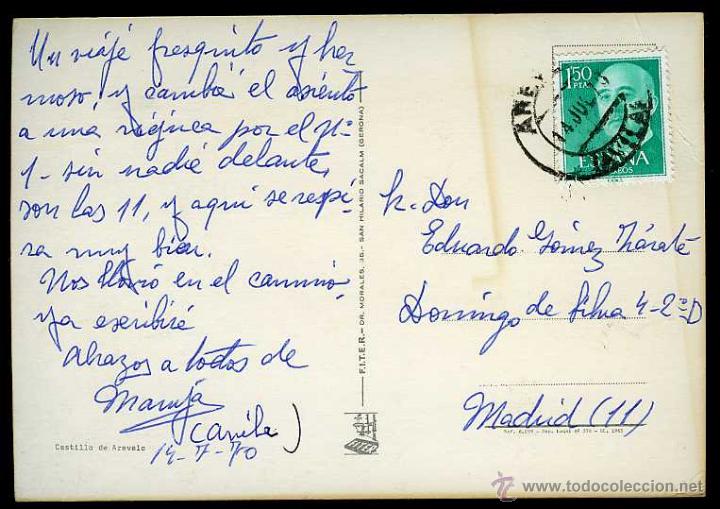 Un viaje fresquito y her
moso, y cambié el asiento
a una por el nº
1 - sin nadie delante,
son las 11, y aquí se respi-
ra muy bien.
Nos llovió en el camino,
ya escribiré
Abrazos a todos de
Maruja
14-7-70
Castillo de Arevalo
F.I.T.E.R.- DR. MORALES, 36.- SAN HILARIO SACALM (GERONA)
1,50
PTAS
ESPAÑA
CORREOS
14 JUL
AVILA
Don
Eduardo Gómez Zárate
Domingo de Silva 4-2º D
Madrid (11)
www.todocoleccion.net